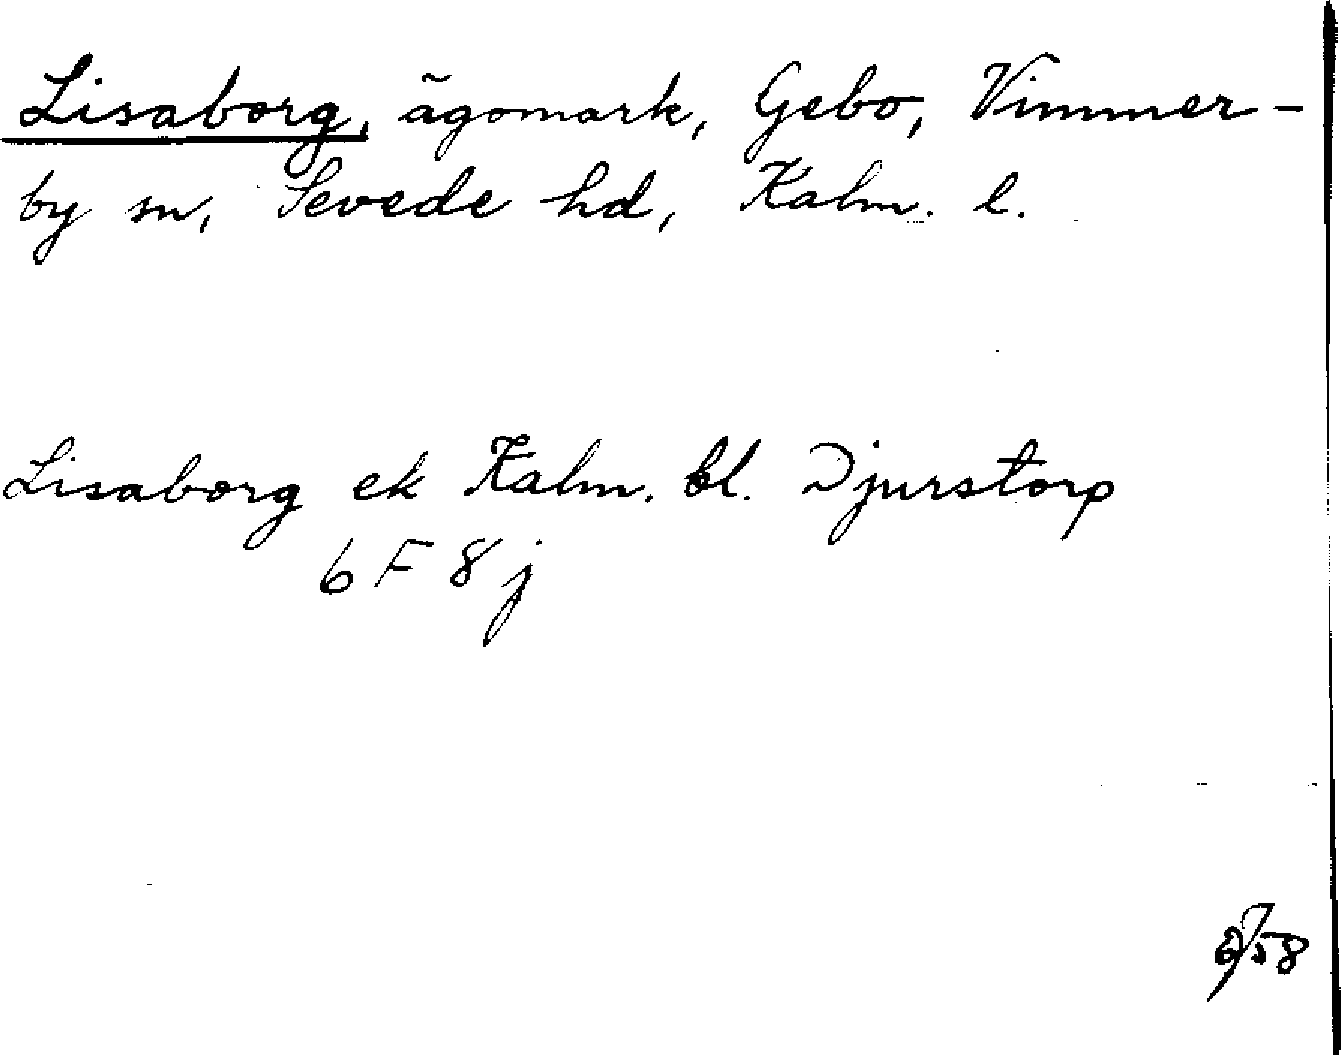 Lisaborg, ägomark, Gebo, Vimmer-
by sn, Sevede hd, Kalm. l.
Lisaborg ek Kalm. bl. Djurstorp
6 F 8 j